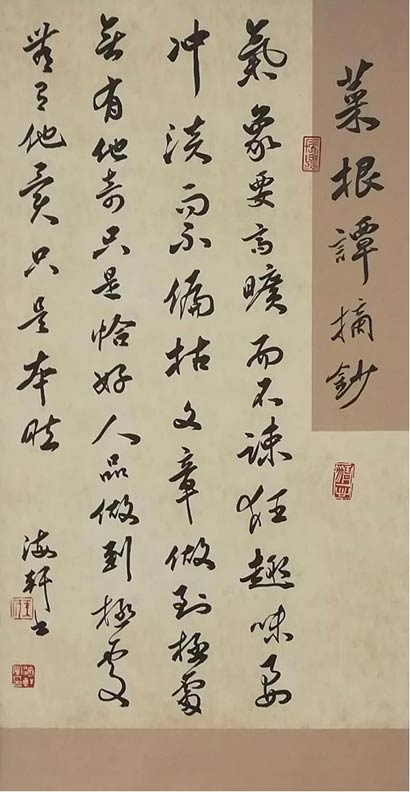 菜根譚摘鈔
氣象要高曠而不疎狂趣味要
冲淡而不偏枯文章做到極處
無有他奇只是恰好人品做到極處
無有他異只是本然
海軒书